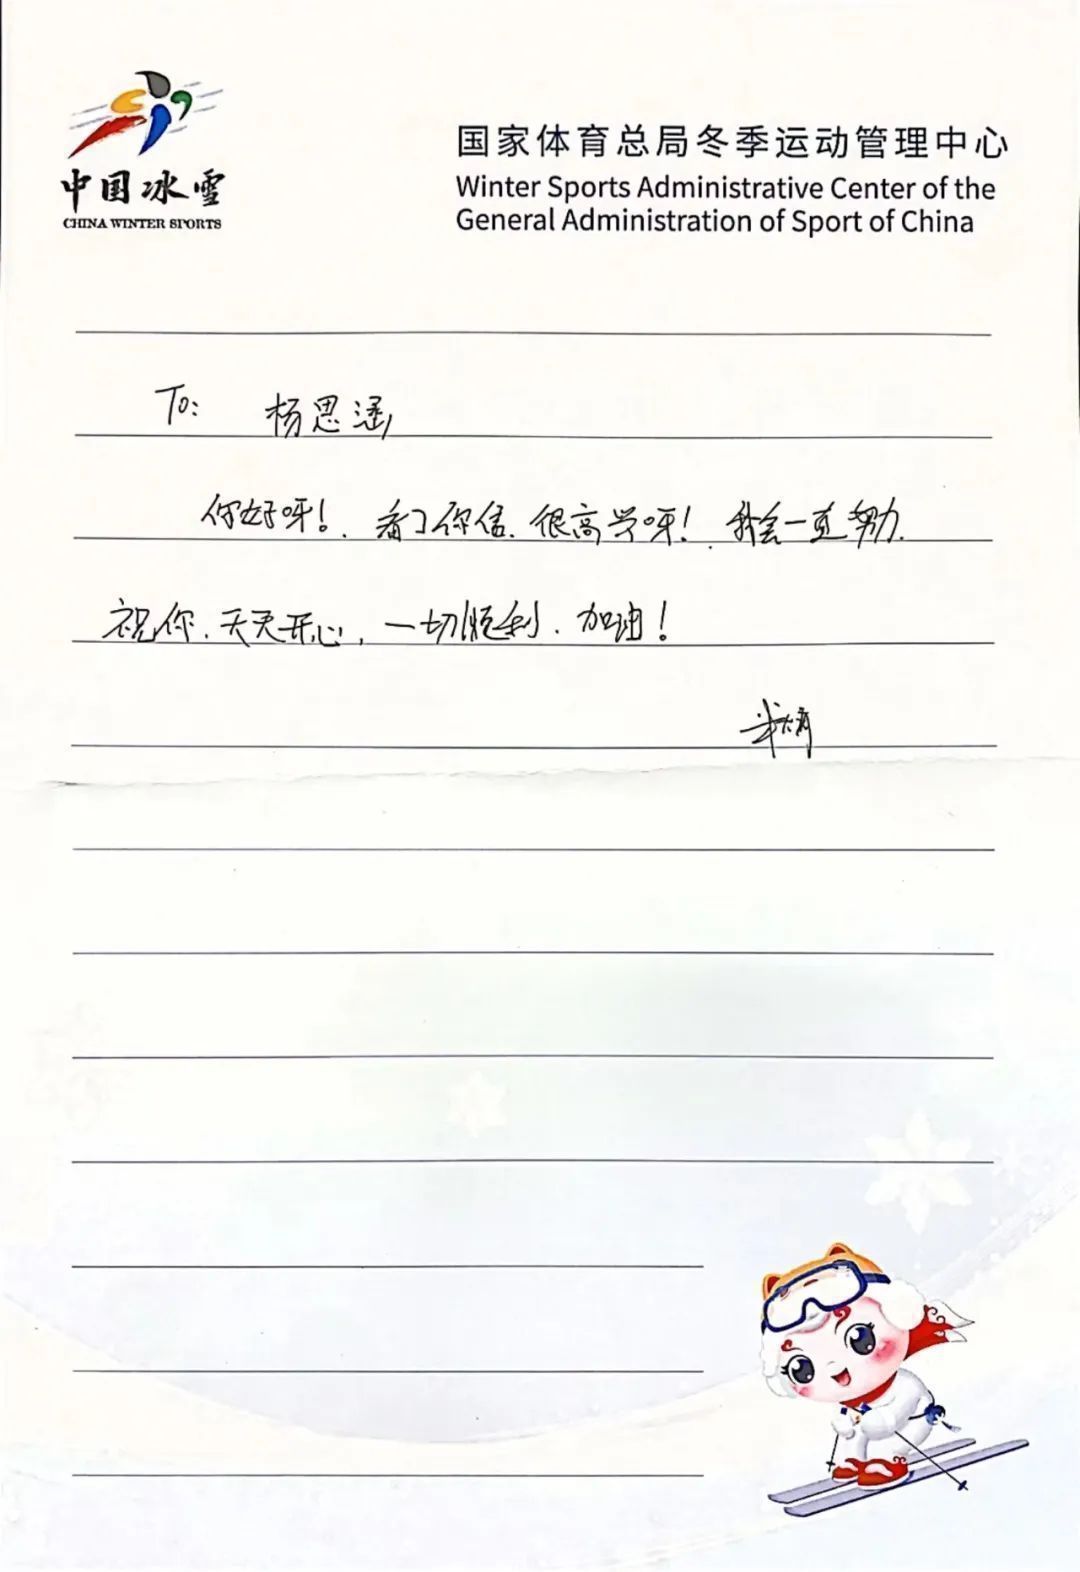 中国冰雪
CHINA WINTER SPORTS
国家体育总局冬季运动管理中心
Winter Sports Administrative Center of the
General Administration of Sport of China
To: 杨思涵
你好呀！. 看了你信. 很高兴呀！. 我会一直努力.
祝你. 天天开心, 一切顺利. 加油！